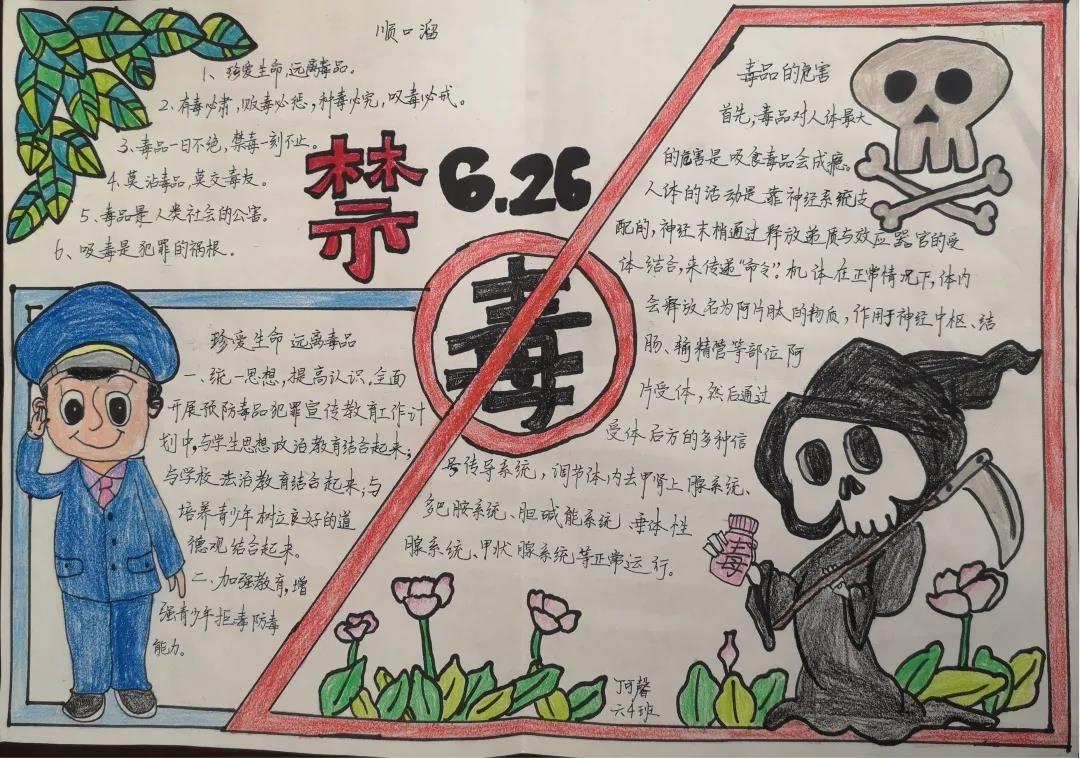 顺口溜
1、珍爱生命,远离毒品。
2、有毒必肃,贩毒必惩,种毒必究,吸毒必戒。
3、毒品一日不绝,禁毒一刻不止。
4、莫沾毒品,莫交毒友。
5、毒品是人类社会的公害。
6、吸毒是犯罪的祸根。
禁
6.26
毒
珍爱生命 远离毒品
一、统一思想,提高认识。全面
开展预防毒品犯罪宣传教育工作计
划中,与学生思想政治教育结合起来;
与学校法治教育结合起来;与
培养青少年树立良好的道
德观结合起来。
二、加强教育,增
强青少年拒毒防毒
能力。
毒品的危害
首先,毒品对人体最大
的危害是吸食毒品会成瘾。
人体的活动是靠神经系统支
配的,神经末梢通过释放递质与效应器官的受
体结合,来传递“命令”。机体在正常情况下,体内
会释放名为阿片肽的物质,作用于神经中枢、结
肠、输精管等部位阿
片受体,然后通过
受体后方的多种信
号传导系统,调节体内去甲肾上腺系统、
多巴胺系统、胆碱能系统、垂体性
腺系统、甲状腺系统等正常运行。
毒
丁可馨
六4班